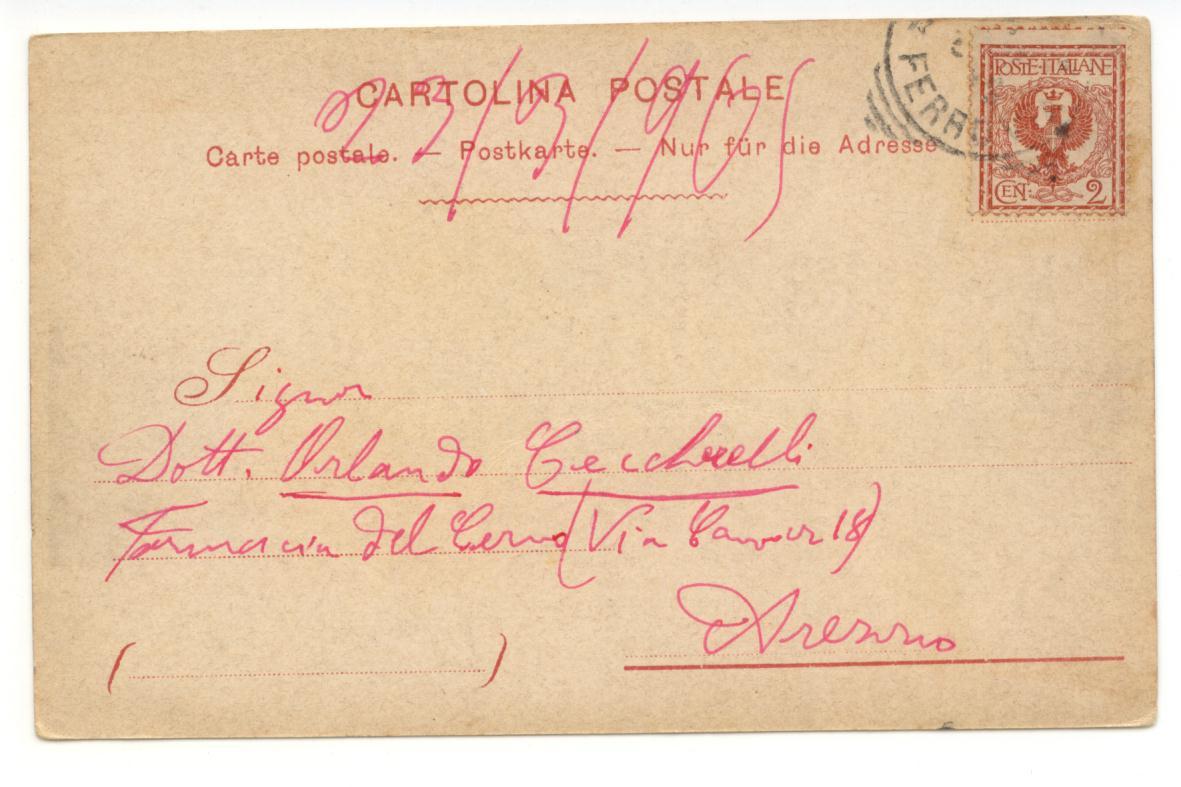 CARTOLINA POSTALE
23/3/1905
Carte postale. — Postkarte. — Nur für die Adresse
POSTE·ITALIANE
CEN: 2
Signor
Dott. Orlando Ceccherelli
Farmacia del Cervo (Via Cavour 18)
Arezzo